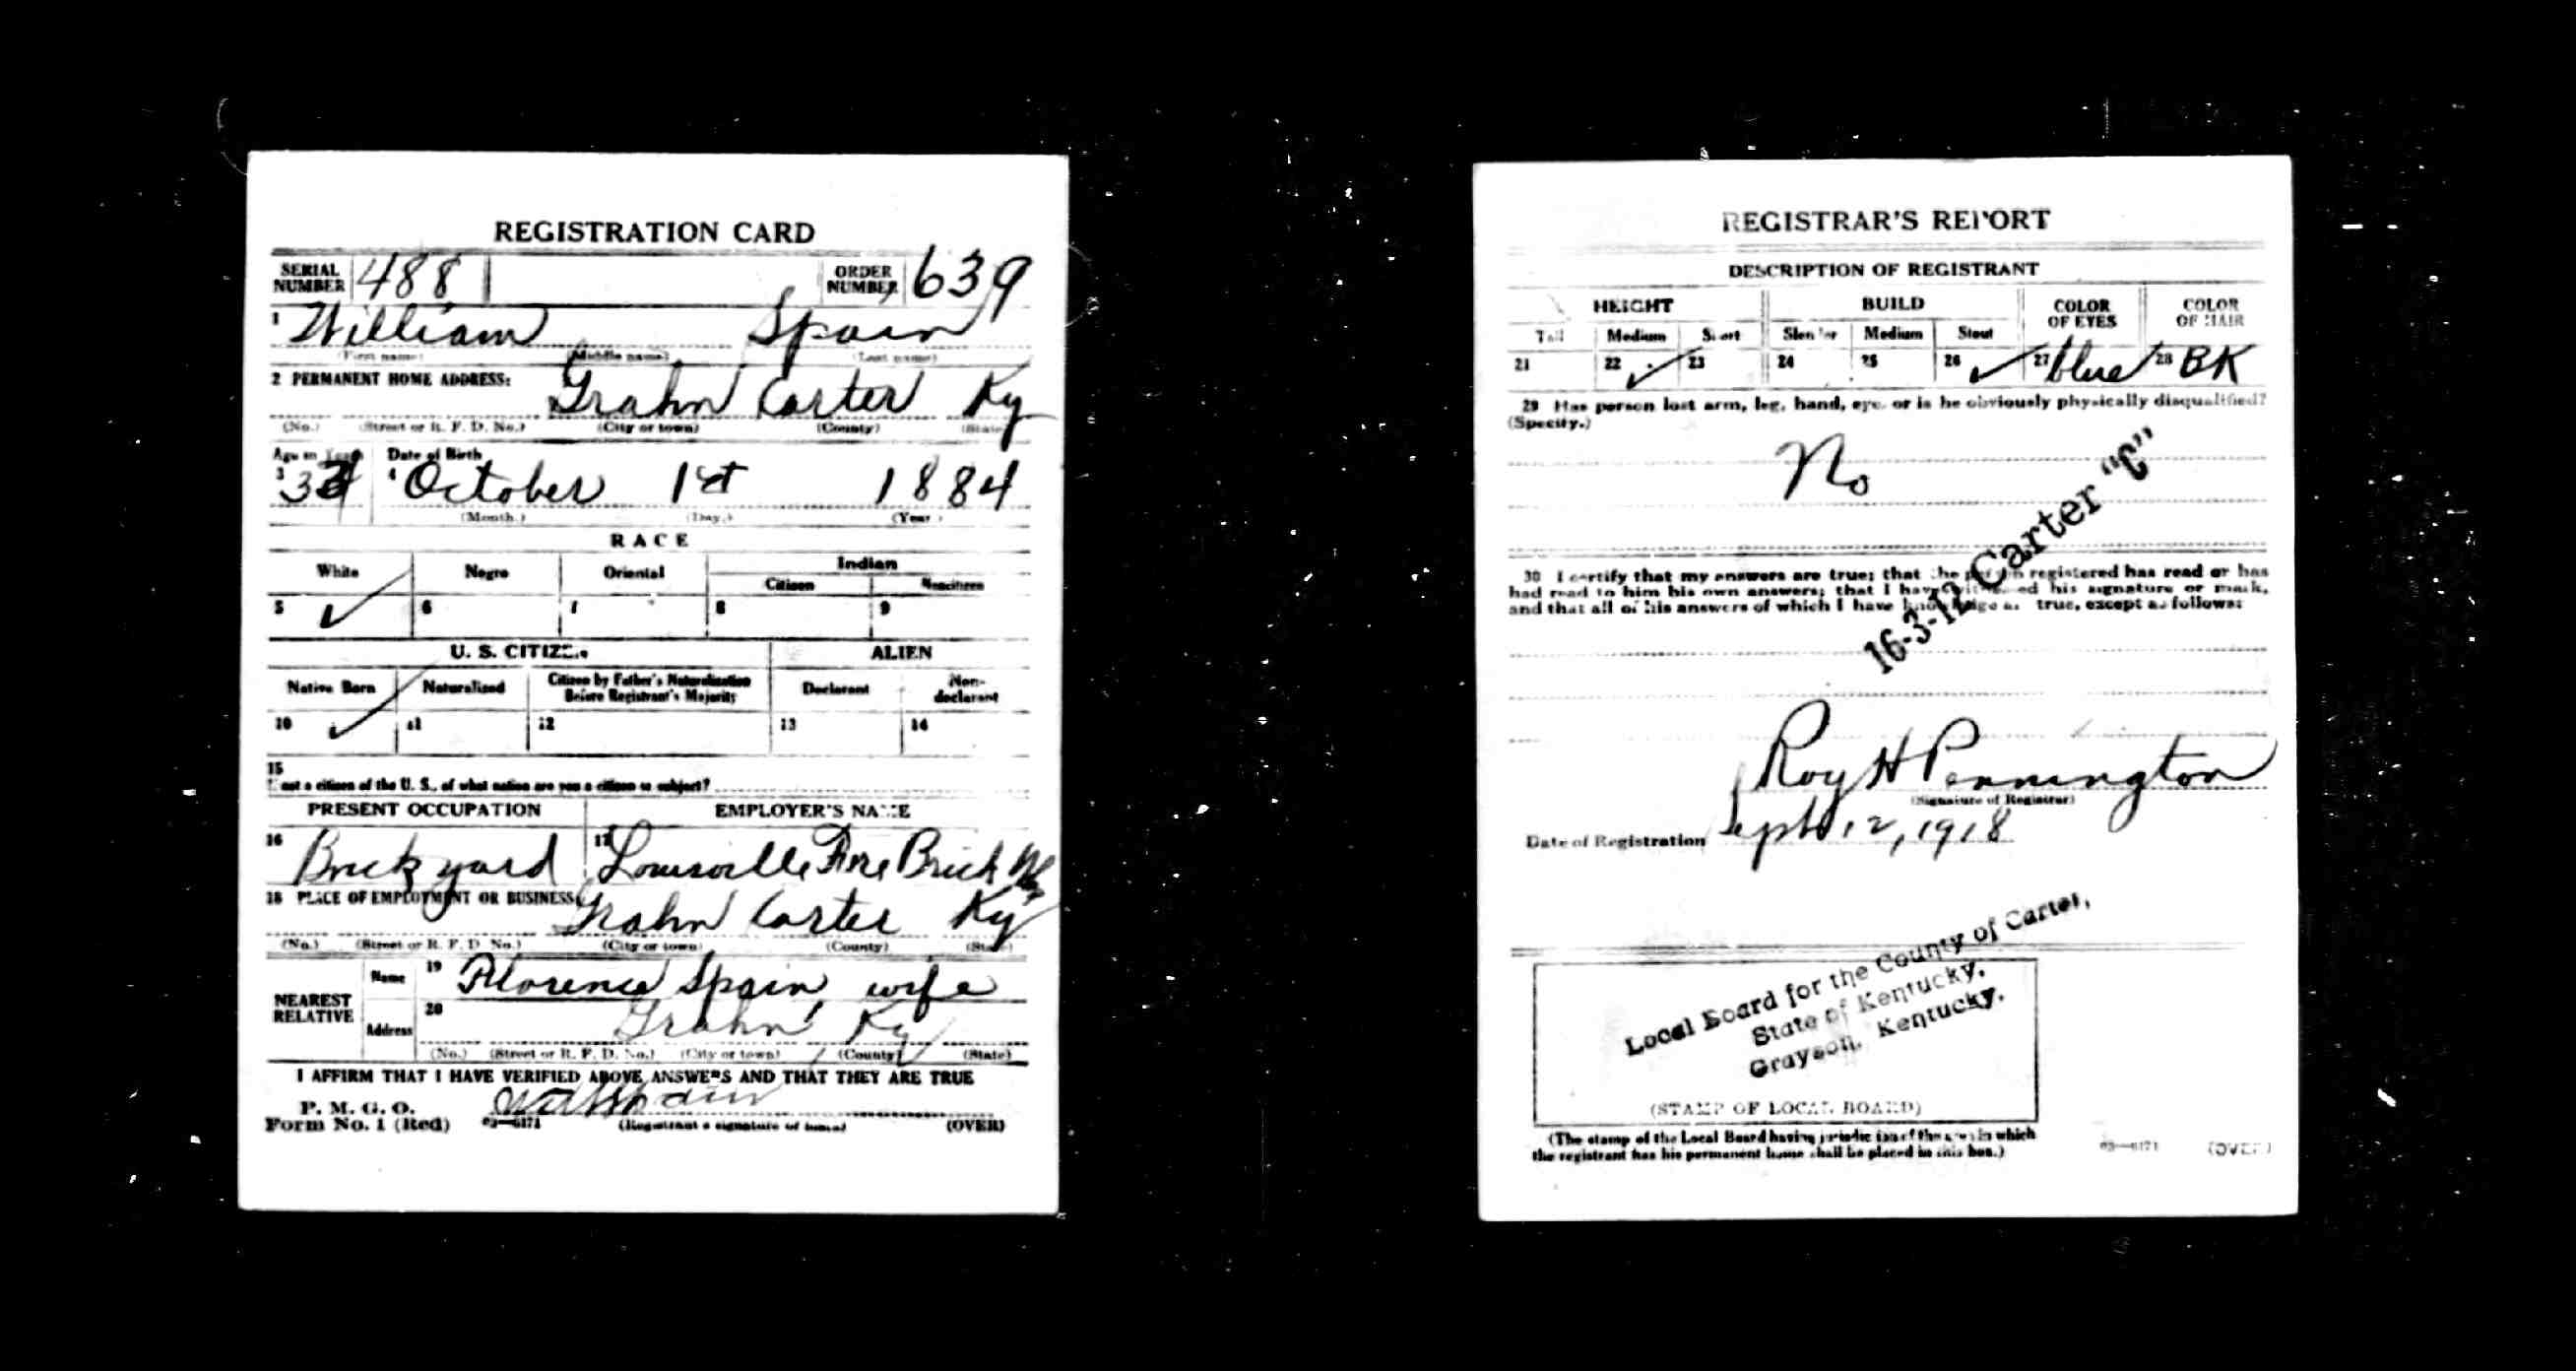 REGISTRATION CARD
SERIAL NUMBER 488 ORDER NUMBER 639
1 William Spain
(First name) (Middle name) (Last name)
2 PERMANENT HOME ADDRESS:
Grahn Carter Ky
(No.) (Street or R. F. D. No.) (City or town) (County) (State)
Age in Years Date of Birth
3 4 October 1st 1884
(Month.) (Day.) (Year.)
RACE
White Negro Oriental Indian
Citizen Noncitizen
5 ✓ 6 7 8 9
U. S. CITIZEN ALIEN
Native Born Naturalized Citizen by Father's Naturalization Before Registrant's Majority Declarant Non-declarant
10 ✓ 11 12 13 14
15
If not a citizen of the U. S., of what nation are you a citizen or subject?
PRESENT OCCUPATION EMPLOYER'S NAME
16 Brick yard 17 Louisville Fire Brick
18 PLACE OF EMPLOYMENT OR BUSINESS:
Grahn Carter Ky
(No.) (Street or R. F. D. No.) (City or town) (County) (State)
NEAREST RELATIVE
Name 19 Florence Spain, wife
Address 20 Grahn Ky
(No.) (Street or R. F. D. No.) (City or town) (County) (State)
I AFFIRM THAT I HAVE VERIFIED ABOVE ANSWERS AND THAT THEY ARE TRUE
P. M. G. O.
Form No. 1 (Red) 03—6171 (Registrant's signature or mark) (OVER)
REGISTRAR'S REPORT
DESCRIPTION OF REGISTRANT
HEIGHT BUILD COLOR OF EYES COLOR OF HAIR
Tall Medium Short Slender Medium Stout
21 22 ✓ 23 24 25 26 ✓ 27 blue 28 BK
29 Has person lost arm, leg, hand, eye, or is he obviously physically disqualified?
(Specify.)
No
16-3-12 Carter "C"
30 I certify that my answers are true; that the person registered has read or has
had read to him his own answers; that I have witnessed his signature or mark,
and that all of his answers of which I have knowledge are true, except as follows:
Roy H Pennington
(Signature of Registrar)
Date of Registration Sept 12, 1918
Local Board for the County of Carter,
State of Kentucky,
Grayson, Kentucky.
(STAMP OF LOCAL BOARD)
(The stamp of the Local Board having jurisdiction of the area in which
the registrant has his permanent home shall be placed in this box.)
03—6171 (OVER)